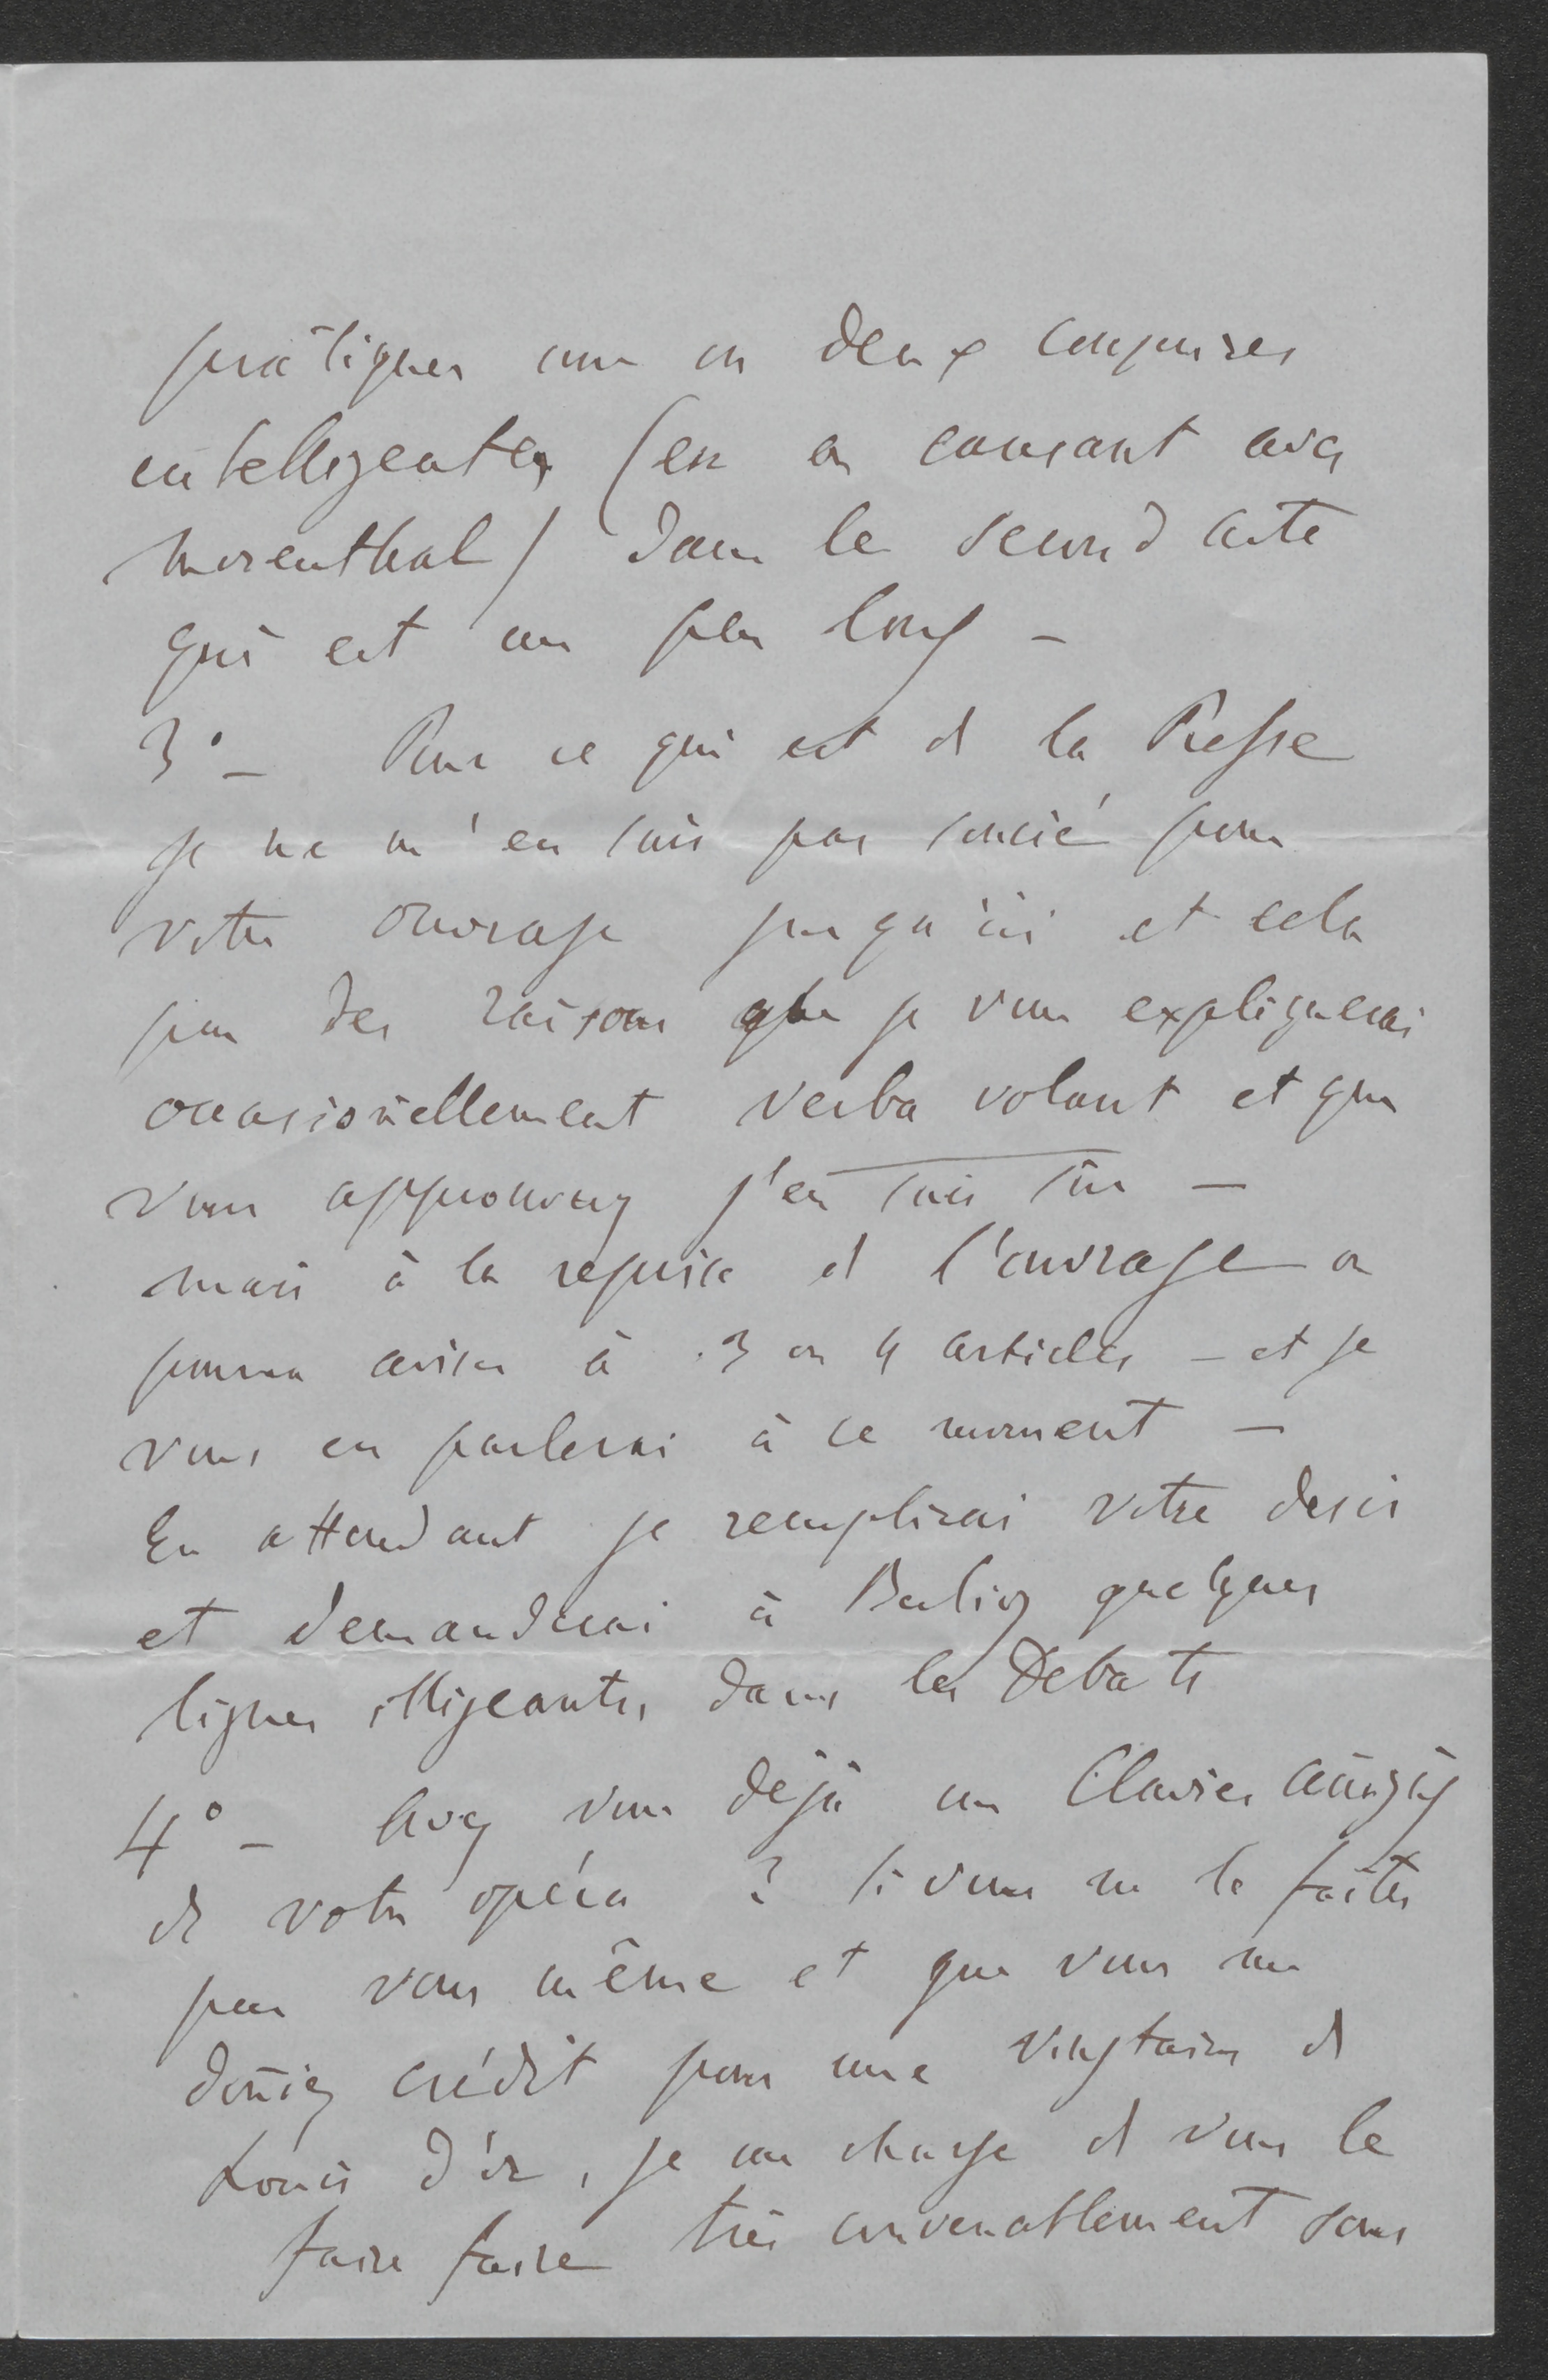 pratiquer une ou deux coupures
intelligentes (en en causant avec
Mosenthal) dans le second acte
qui est un peu long –
3° – Pour ce qui est de la Presse
je ne m'en suis pas soucié pour
votre ouvrage jusqu'ici et cela
pour des raisons que je vous expliquerai
occasionellement verba volant et que
vous approuvez j'en suis sûr –
mais à la reprise de l'ouvrage on
pourra aviser à 3 ou 4 articles – et je
vous en parlerai à ce moment –
En attendant je remplirai votre desir
et demanderai à Berlioz quelques
lignes obligeantes dans les Debats
4° – Avez vous déjà un Clavier Auszug
de votre opéra ? Si vous ne le faites
par vous même et que vous me
donniez crédit pour une vingtaine de
Louis d'or, je me charge de vous le
faire faire très convenablement sous